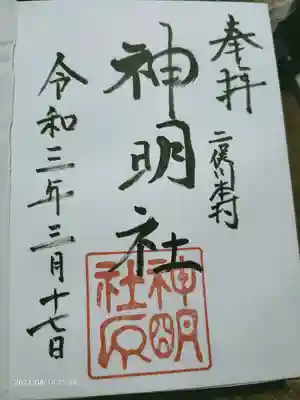 奉拝
二俣川本村
神明社
神明社
令和三年三月十七日